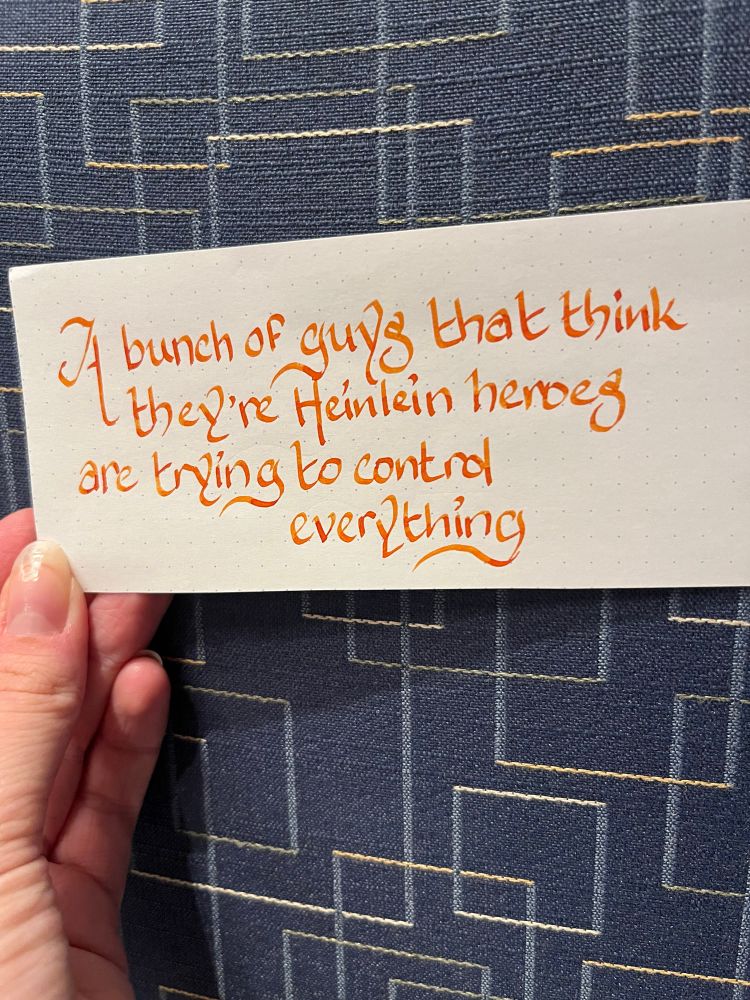 A bunch of guys that think
they're Heinlein heroes
are trying to control
everything